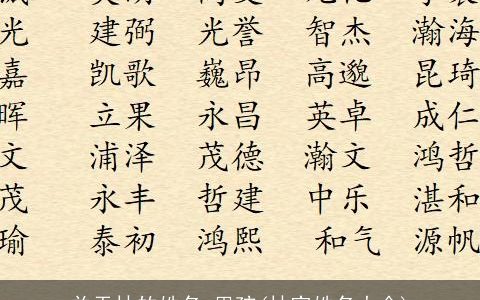 光 建弼 光誉 智杰 瀚海
嘉 凯歌 巍昂 高邈 昆琦
晖 立果 永昌 英卓 成仁
文 浦泽 茂德 瀚文 鸿哲
茂 永丰 哲建 中乐 湛和
瑜 泰初 鸿熙 和气 源帆